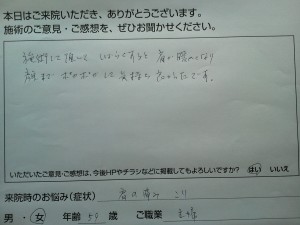 本日はご来院いただき、ありがとうございます。
施術のご意見・ご感想を、ぜひお聞かせください。
施術して頂いて しばらくすると 肩が暖かくなり
顔まで ポカポカして気持ち良かったです。
いただいたご意見・ご感想は、今後HPやチラシなどに掲載してもよろしいですか? はい いいえ
来院時のお悩み(症状) 肩の痛み こり
男・女 年齢 59 歳 ご職業 主婦